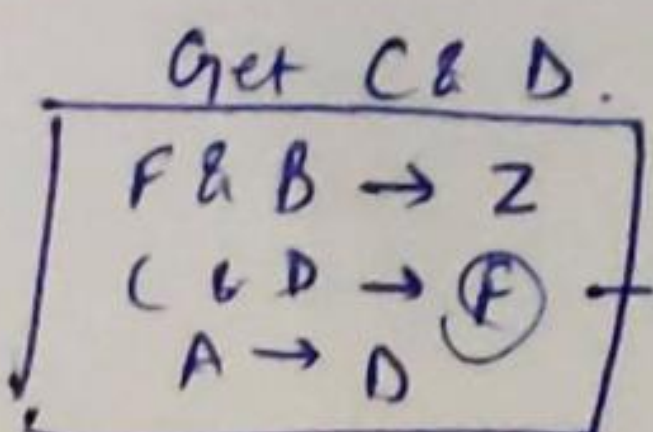 Get C & D.
F & B → Z
C & D → F
A → D